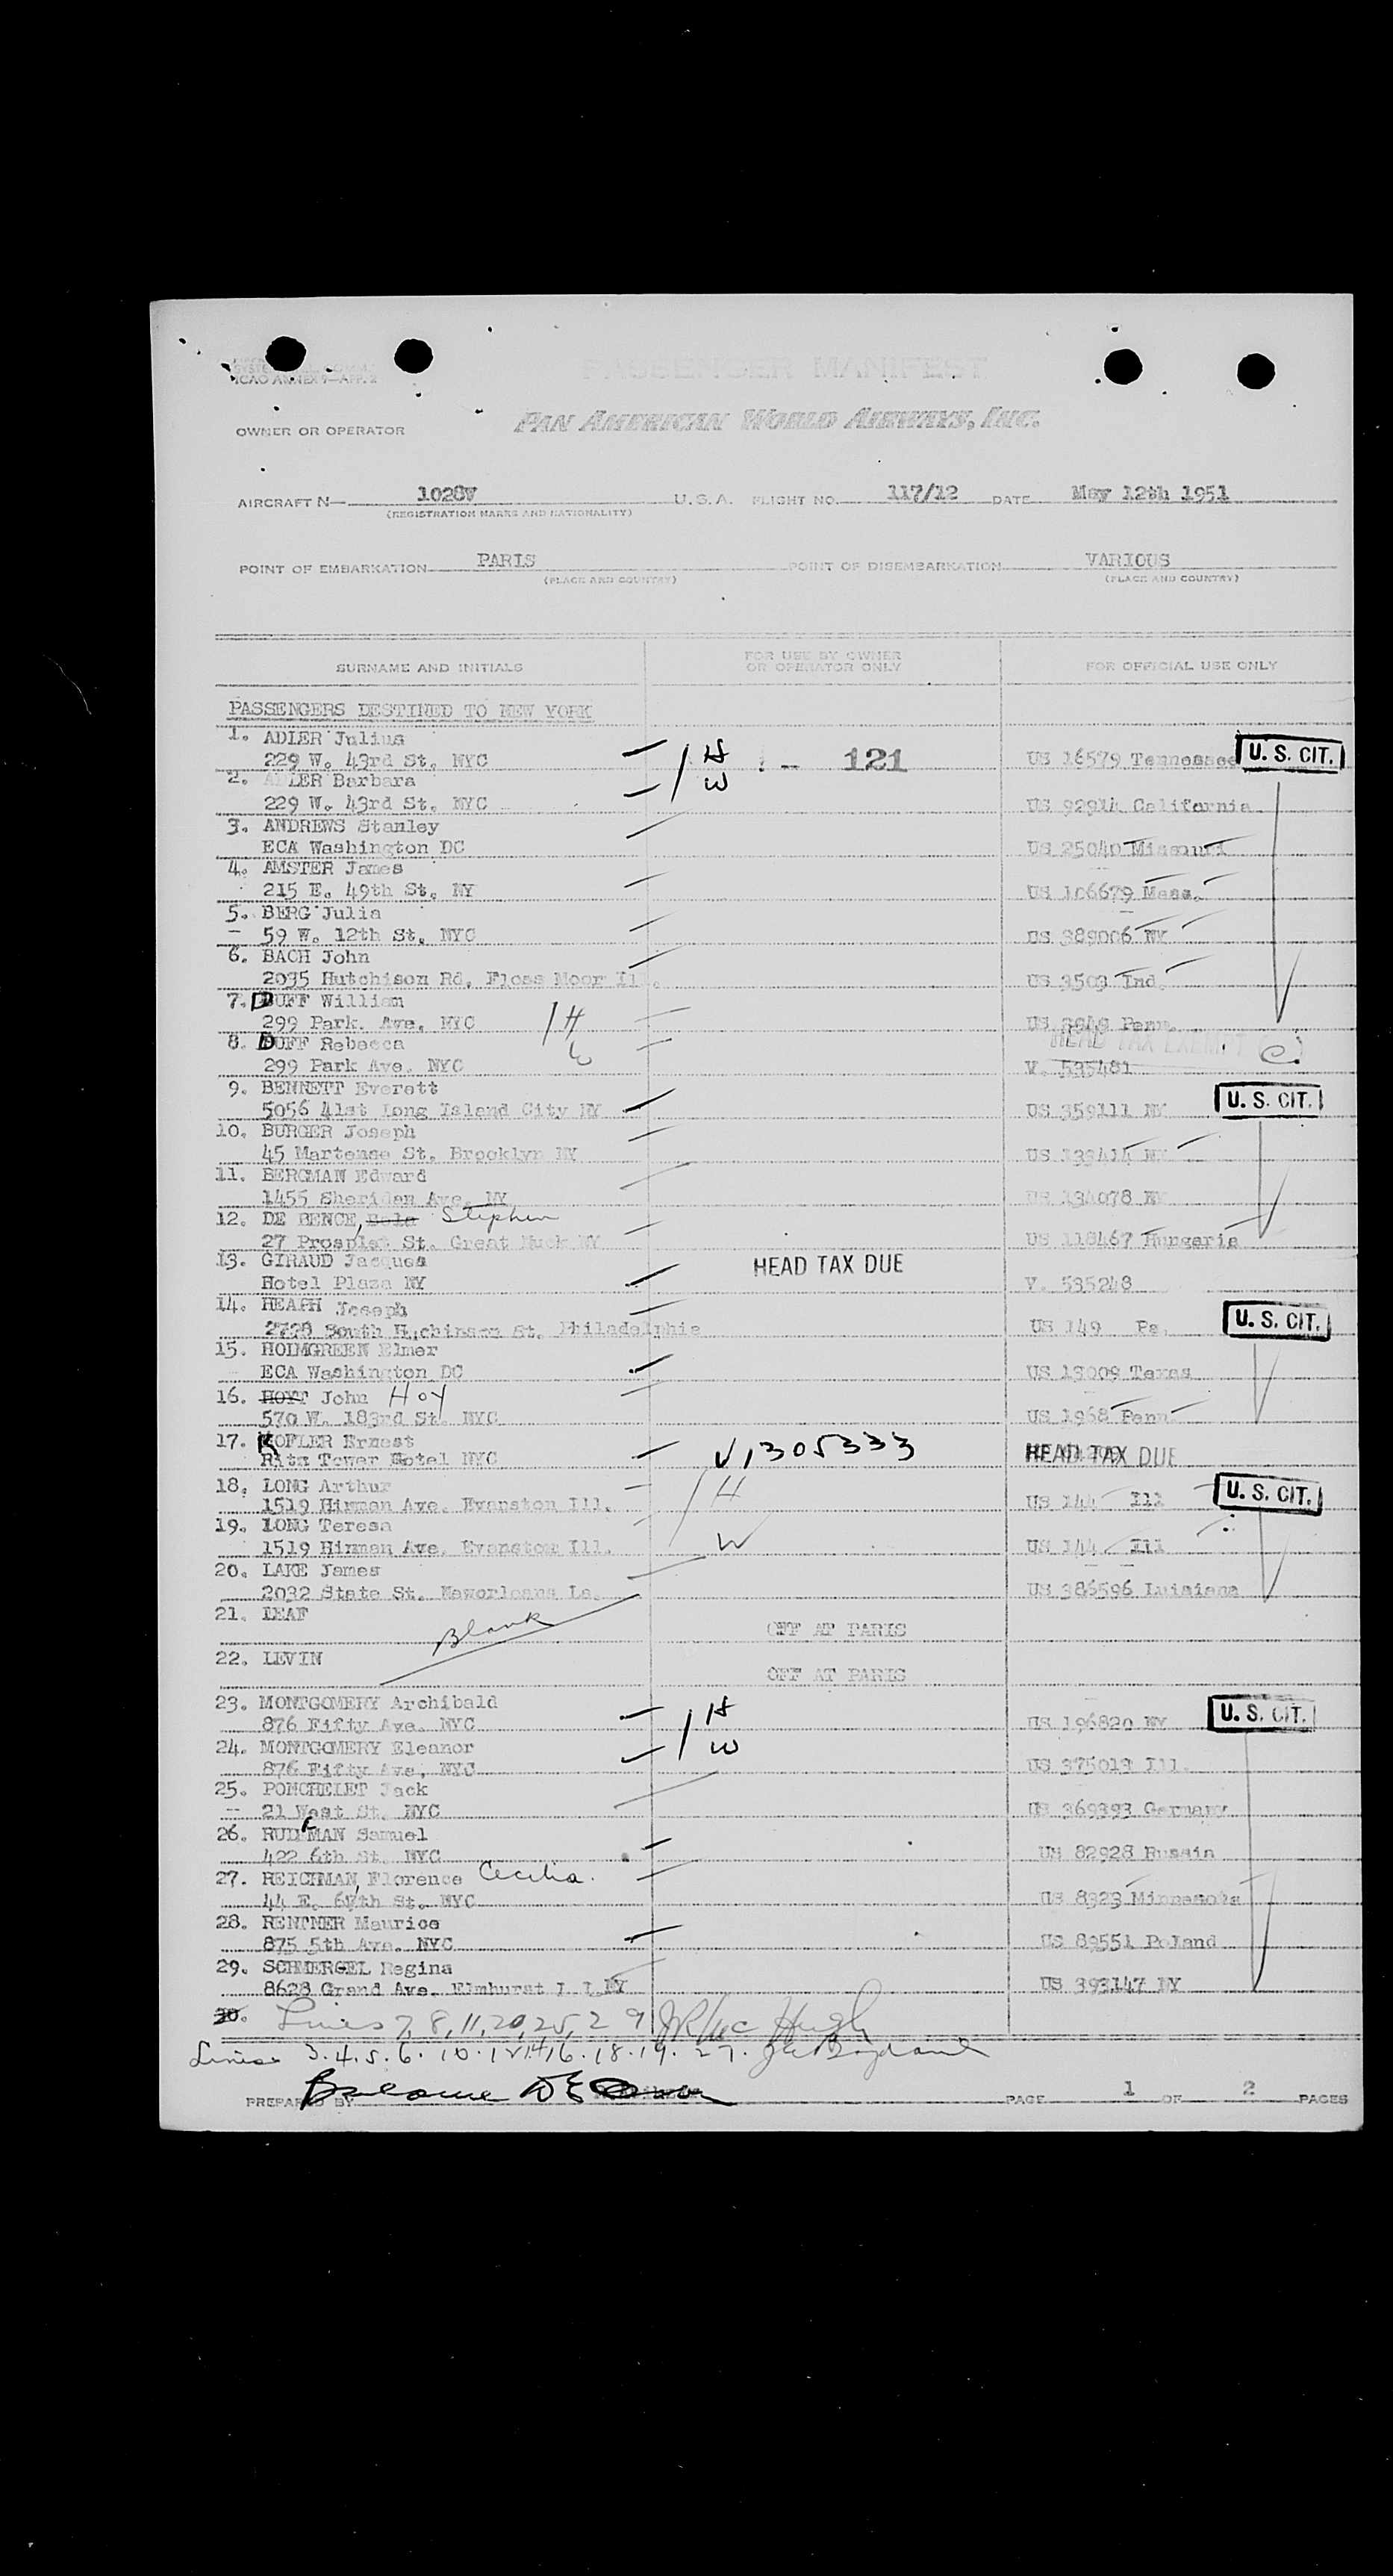 ICAO ANNEX 9—APP. 2
PASSENGER MANIFEST
OWNER OR OPERATOR PAN AMERICAN WORLD AIRWAYS, INC.
AIRCRAFT N— 1028V U.S.A. FLIGHT NO. 117/12 DATE May 12th 1951
(REGISTRATION MARKS AND NATIONALITY)
POINT OF EMBARKATION PARIS POINT OF DISEMBARKATION VARIOUS
(PLACE AND COUNTRY) (PLACE AND COUNTRY)
SURNAME AND INITIALS FOR USE BY OWNER OR OPERATOR ONLY FOR OFFICIAL USE ONLY
PASSENGERS DESTINED TO NEW YORK
1. ADLER Julius
229 W. 43rd St. NYC H 121 US 16579 Tennessee U. S. CIT.
2. ADLER Barbara W
229 W. 43rd St. NYC US 92914 California
3. ANDREWS Stanley
ECA Washington DC US 25040 Missouri
4. AMSTER James
215 E. 49th St. NY US 106679 Mass.
5. BERG Julia
59 W. 12th St. NYC US 389006 NY
6. BACH John
2035 Hutchison Rd. Floss Moor Ill. US 3503 Ind.
7. DUFF William
299 Park. Ave. NYC H US Penn.
8. DUFF Rebecca W HEAD TAX EXEMPT
299 Park Ave. NYC V. 535481
9. BENNETT Everett
5056 41st Long Island City NY US 359111 NY U. S. CIT.
10. BURGER Joseph
45 Martense St. Brooklyn NY US 133414 NY
11. BERGMAN Edward
1455 Sheridan Ave. NY US 134078 NY
12. DE BENCE, Bela Stephen
27 Prosplet St. Great Nuck NY US 118467 Hungaria
13. GIRAUD Jacques HEAD TAX DUE
Hotel Plaza NY V. 535248
14. HEAPH Joseph
2728 South Huchinson St. Philadelphia US 149 Pa. U. S. CIT.
15. HOLMGREEN Elmer
ECA Washington DC US 13009 Texas
16. HOYT John HOY
570 W. 183rd St. NYC US 1968 Penn
17. KOFLER Ernest
Ritz Tower Hotel NYC V1305333 HEAD TAX DUE
18. LONG Arthur H
1519 Hinman Ave. Evanston Ill. US 144 Ill U. S. CIT.
19. LONG Teresa
1519 Hinman Ave. Evanston Ill. W US 144 Ill
20. LAKE James
2032 State St. Neworleans La. US 386596 Luisiana
21. LEAF Blank OFF AT PARIS
22. LEVIN OFF AT PARIS
23. MONTGOMERY Archibald H
876 Fifty Ave. NYC US 196820 NY U. S. CIT.
24. MONTGOMERY Eleanor W
876 Fifty Ave, NYC US 375013 Ill.
25. PONCHELET Jack
21 West St. NYC US 369393 Germany
26. RUDMAN Samuel
422 6th St. NYC US 82928 Russin
27. REICHMAN, Florence Cecilia.
44 E. 67th St. NYC US 8323 Minnesota
28. RENTNER Maurice
875 5th Ave. NYC US 89551 Poland
29. SCHMERGEL Regina
8628 Grand Ave. Elmhurst L I NY US 393147 NY
30. Lines 7, 8, 11, 20, 25, 29 Hugh
Lines 3. 4. 5. 6. 10. 12 14 16. 18. 19. 27.
PREPARED BY PAGE 1 OF 2 PAGES